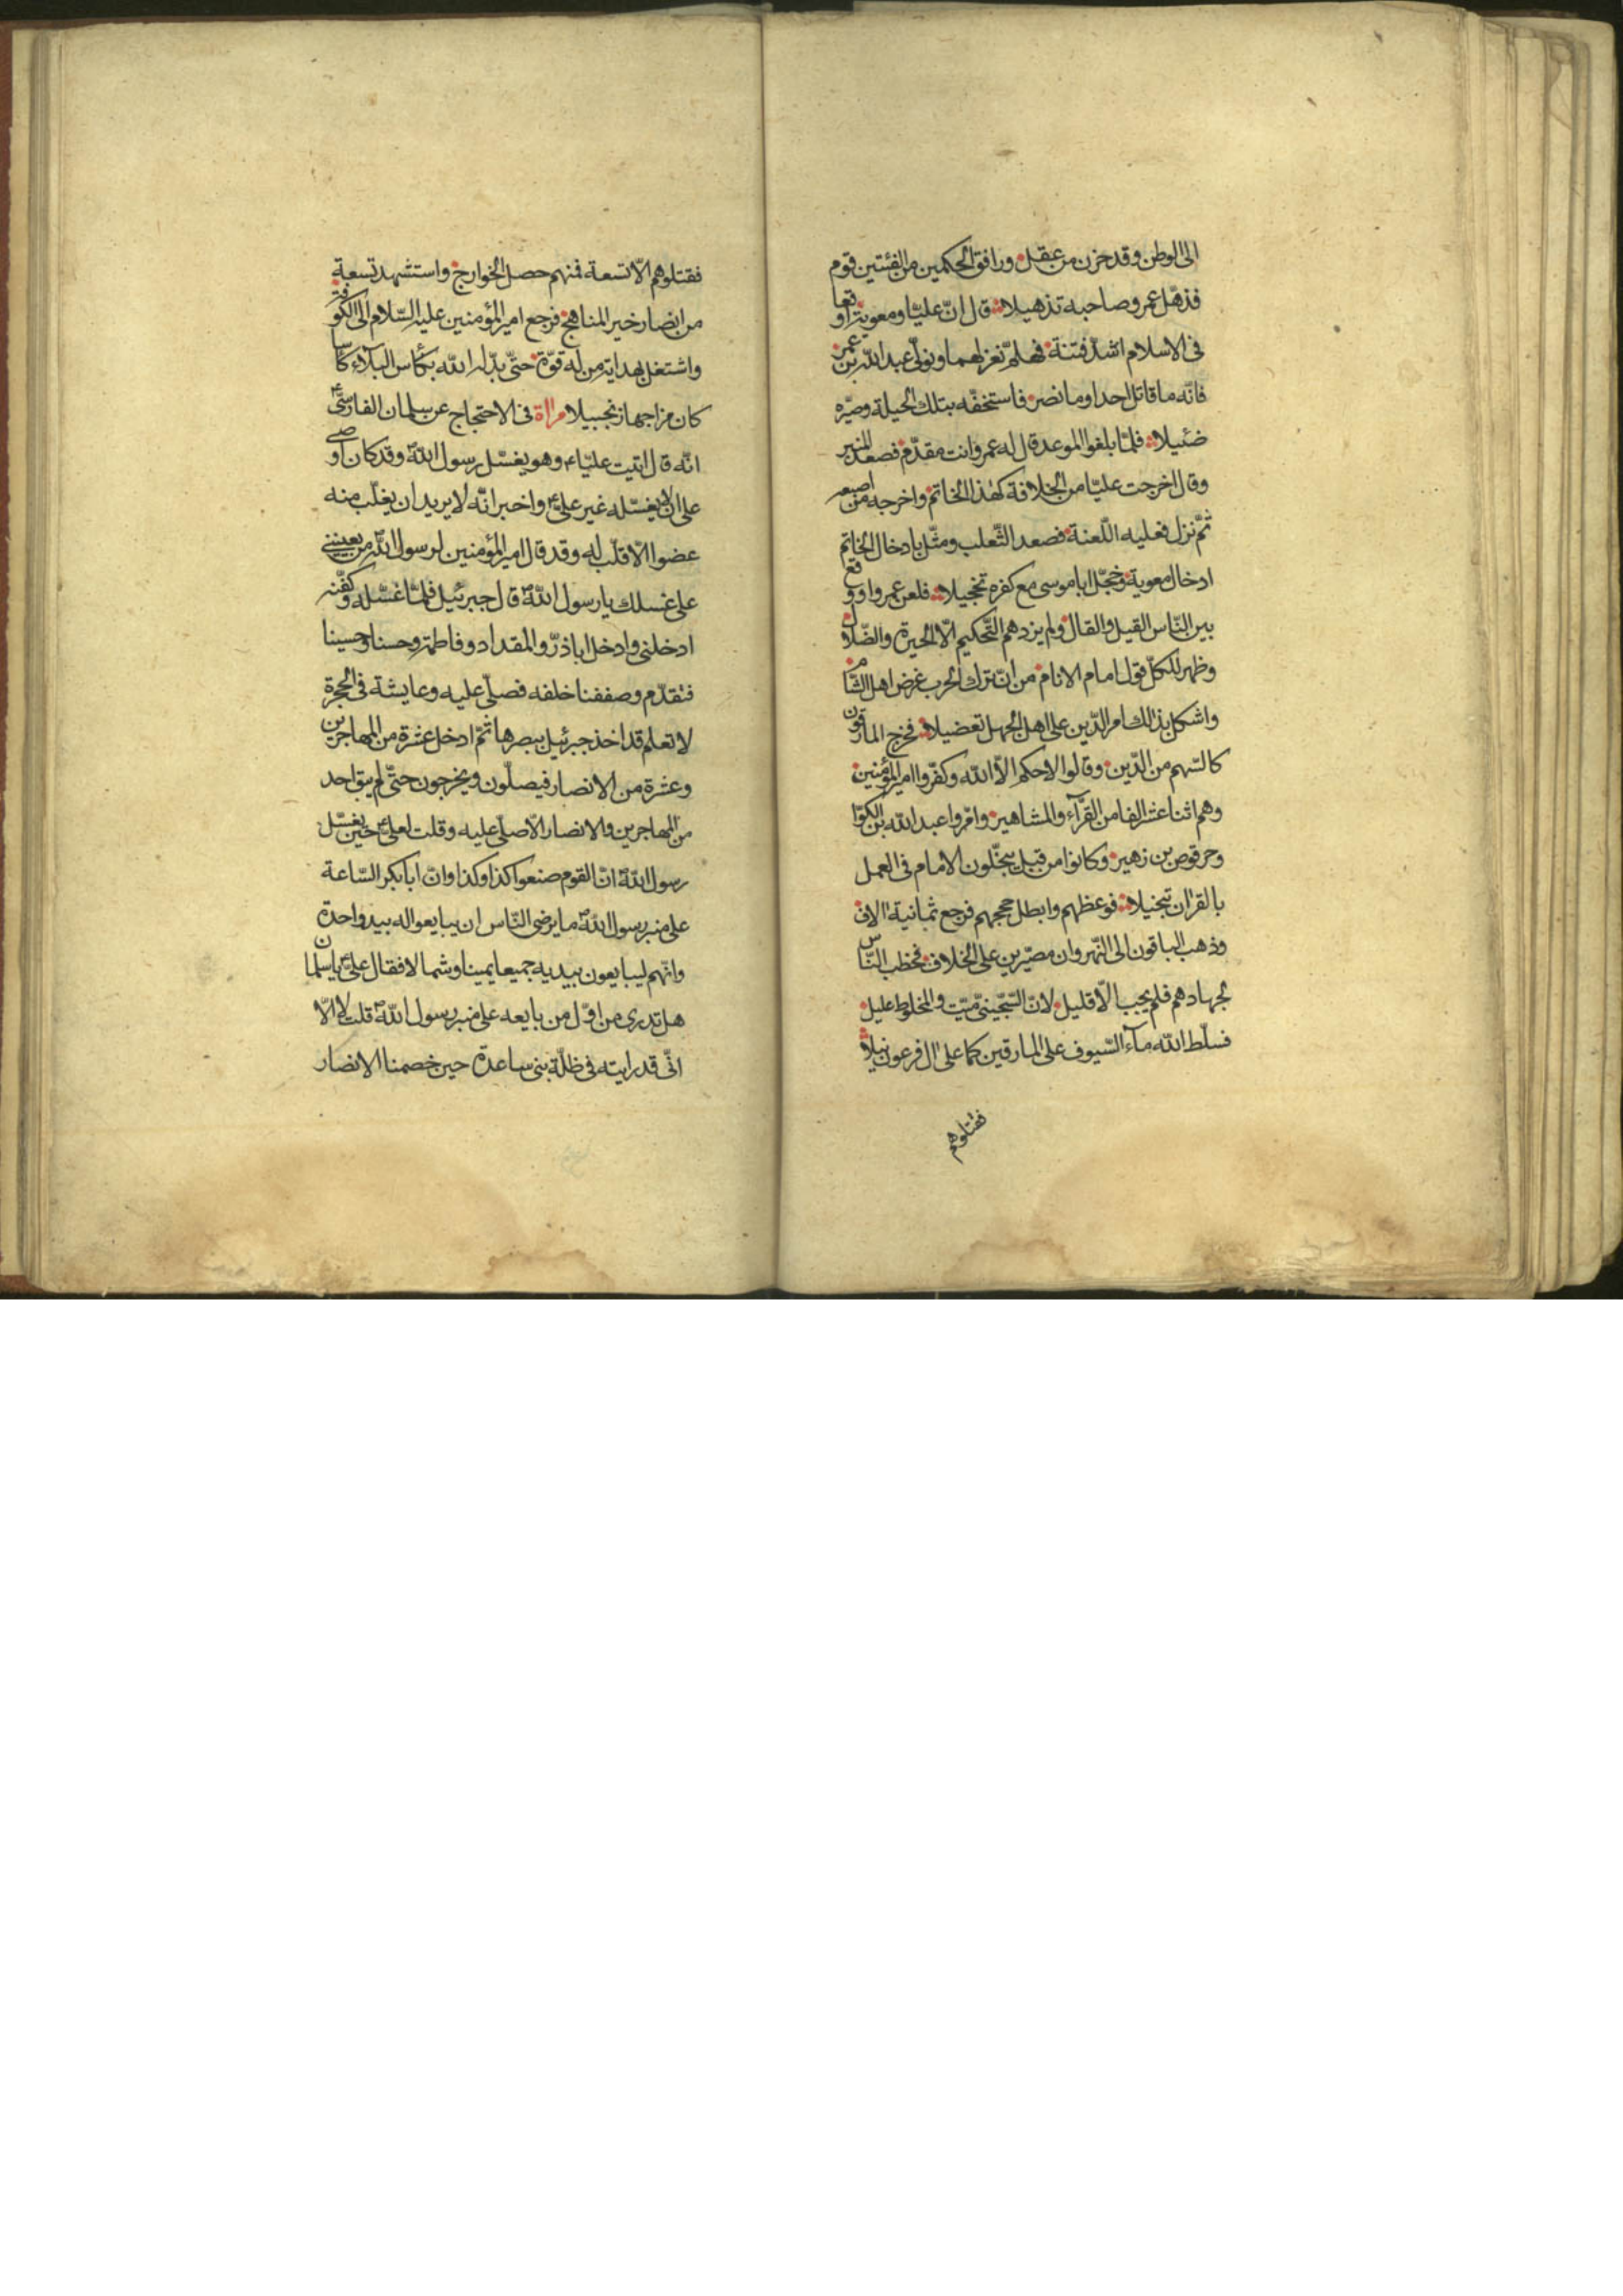 الى الوطن وقد حزن من عقل ورافق الحكمين من الفئتين قوم
فذهّل عمرو صاحبه تذهيلا قال انّ عليّا ومعوية اوقعا
فى الاسلام اشدّ فتنة فهلمّ نعزلهما ونولّى عبد الله بن عمر
فانّه ما قاتل احدا وما نصر فاستخفّه بتلك الحيلة وصيّره
ضئيلا فلمّا بلغوا الموعد قال له عمرو انت مقدّم فصعد المنبر
وقال اخرجت عليّا من الخلافة كهذا الخاتم واخرجه من اصبعه
ثمّ نزل فعليه اللّعنة فصعد الثّعلب ومثّل بادخال الخاتم
ادخال معوية وخجّل ابا موسى مع كفره تخجيلا فلعن عمروا ووقع
بين النّاس القيل والقال ولم يزدهم التّحكيم الّا الحيرة والضّلال
وظهر للكلّ قول امام الانام من انّ ترك الحرب غرض اهل الشّام
واشكل بذلك امر الدّين على اهل الجهل تعضيلا فخرج المارقون
كالسّهم من الدّين وقالوا لا حكم الّا الله وكفّروا امير المؤمنين
وهم اثنا عشر الفا من القرّآء والمشاهير وامّروا عبد الله بن الكوّا
وحرقوص بن زهير وكانوا من قبل يبخّلون الامام فى العمل
بالقران تبخيلا فوعظهم وابطل حججهم فرجع ثمانية الاف
وذهب الباقون الى النّهروان مصيّرين على الخلاف فخطب النّاس
لجهادهم فلم يجب الّا قليل لانّ السّجّينىّ ميّت والمخلوط عليل
فسلّط الله مآء السّيوف على المارقين كما على ال فرعون نيلا
فقتلوهم
فقتلوهم الّا تسعة فمنهم حصل الخوارج واستشهد تسعة
من انصار خير المناهج فرجع امير المؤمنين عليه السّلام الى الكوفة
واشتغل بهداية من له قوّة حتّى بدّله الله بكأس البلآء كأسا
كان مزاجها زنجبيلا مراة فى الاحتجاج عن سلمان الفارسىّ
انّه قال اتيت عليّاء وهو يغسّل رسول اللهص وقد كان اوصى
على ان لا يغسّله غير علىّ واخبر انّه لا يريد ان يغلّب منه
عضوا الّا قلّب له وقد قال امير المؤمنين لرسول الله من يعيننى
على غسلك يا رسول اللهص قال جبرئيل فلمّا غسّله وكفّنه
ادخلنى وادخل اباذرّ والمقداد وفاطمة وحسنا وحسينا
فتقدّم وصففنا خلفه فصلّى عليه وعايشة فى الحجرة
لا تعلم قد اخذ جبرئيل ببصرها ثمّ ادخل عشرة من المهاجرين
وعشرة من الانصار فيصلّون ويخرجون حتّى لم يبق احد
من المهاجرين والانصار الّا صلّى عليه وقلت لعلىّ حين يغسّل
رسول اللهص انّ القوم صنعوا كذا وكذا وانّ ابابكر السّاعة
على منبر رسول اللهص ما يرضى النّاس ان يبايعوا له بيد واحدة
وانّهم ليبايعون بيديه جميعا يمينا وشمالا فقال علىّ يا سلمان
هل تدرى من اوّل من بايعه على منبر رسول اللهص قلت لا الّا
انّى قد رايته فى ظلّة بنى ساعدة حين خصمنا الانصار